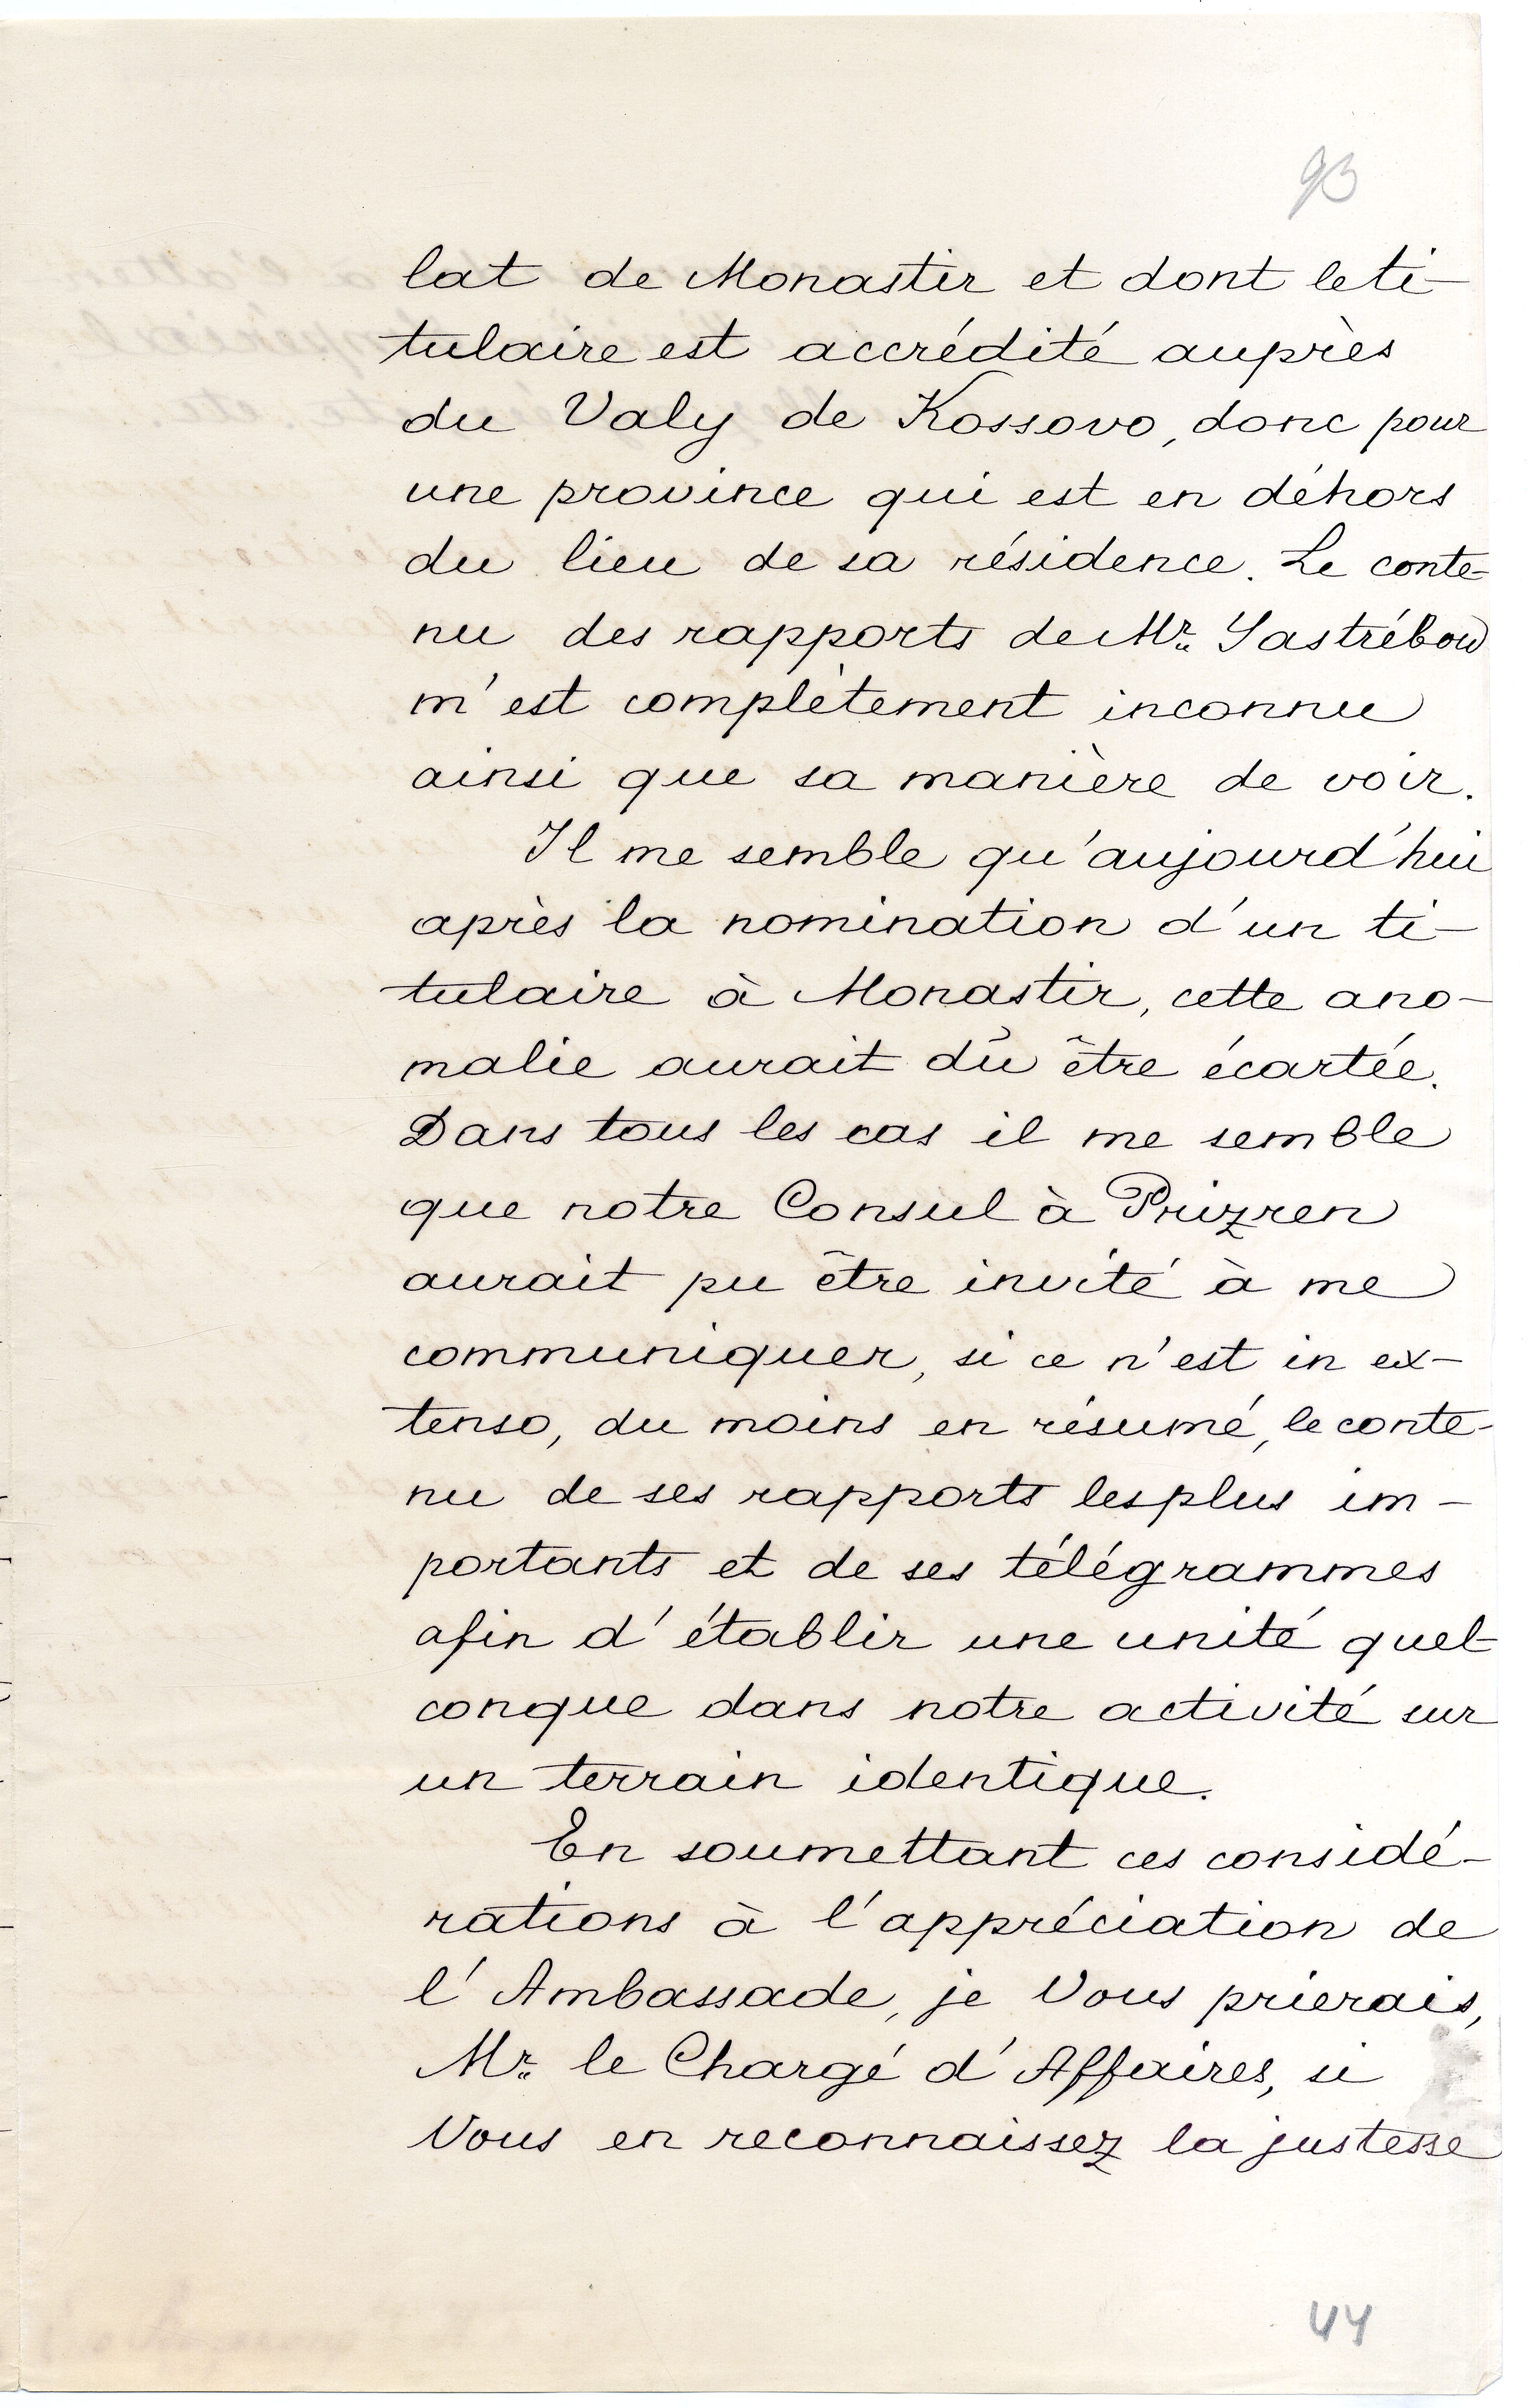 93
lat de Monastir et dont le ti-
tulaire est accrédité auprès
du Valy de Kossovo, donc pour
une province qui est en déhors
du lieu de sa résidence. Le conte-
nu des rapports de Mr. Yastrébow
m'est complètement inconnu
ainsi que sa manière de voir.
Il me semble qu'aujourd'hui
après la nomination d'un ti-
tulaire à Monastir, cette ano-
malie aurait dû être écartée.
Dans tous les cas il me semble
que notre Consul à Prizren
aurait pu être invité à me
communiquer, si ce n'est in ex-
tenso, du moins en résumé, le conte-
nu de ses rapports les plus im-
portants et de ses télégrammes
afin d'établir une unité quel-
conque dans notre activité sur
un terrain identique.
En soumettant ces considé-
rations à l'appréciation de
l'Ambassade, je Vous prierais,
Mr. le Chargé d'Affaires, si
Vous en reconnaissez la justesse
44